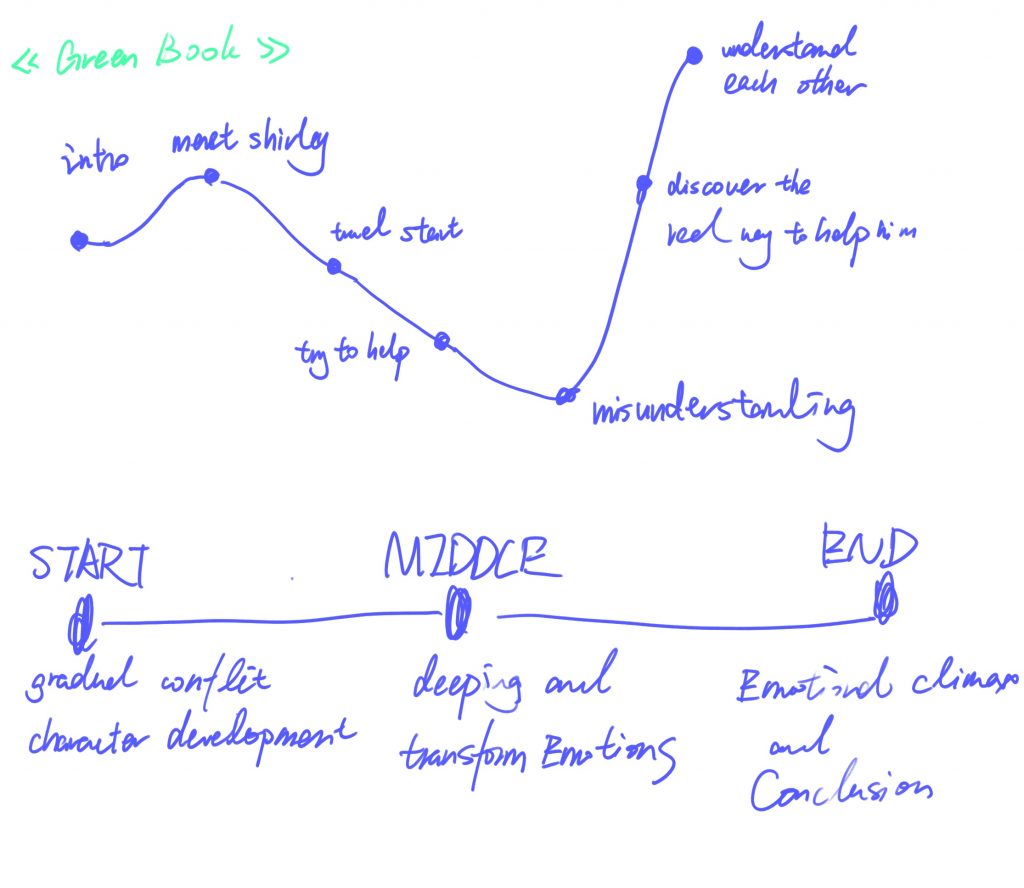 ≪ Green Book ≫
intro
meet shirley
travel start
try to help
misunderstanding
discover the
real way to help him
understand
each other
START
MIDDLE
END
gradual conflit
character development
deeping and
transform Emotions
Emotional climax
and
Conclusion